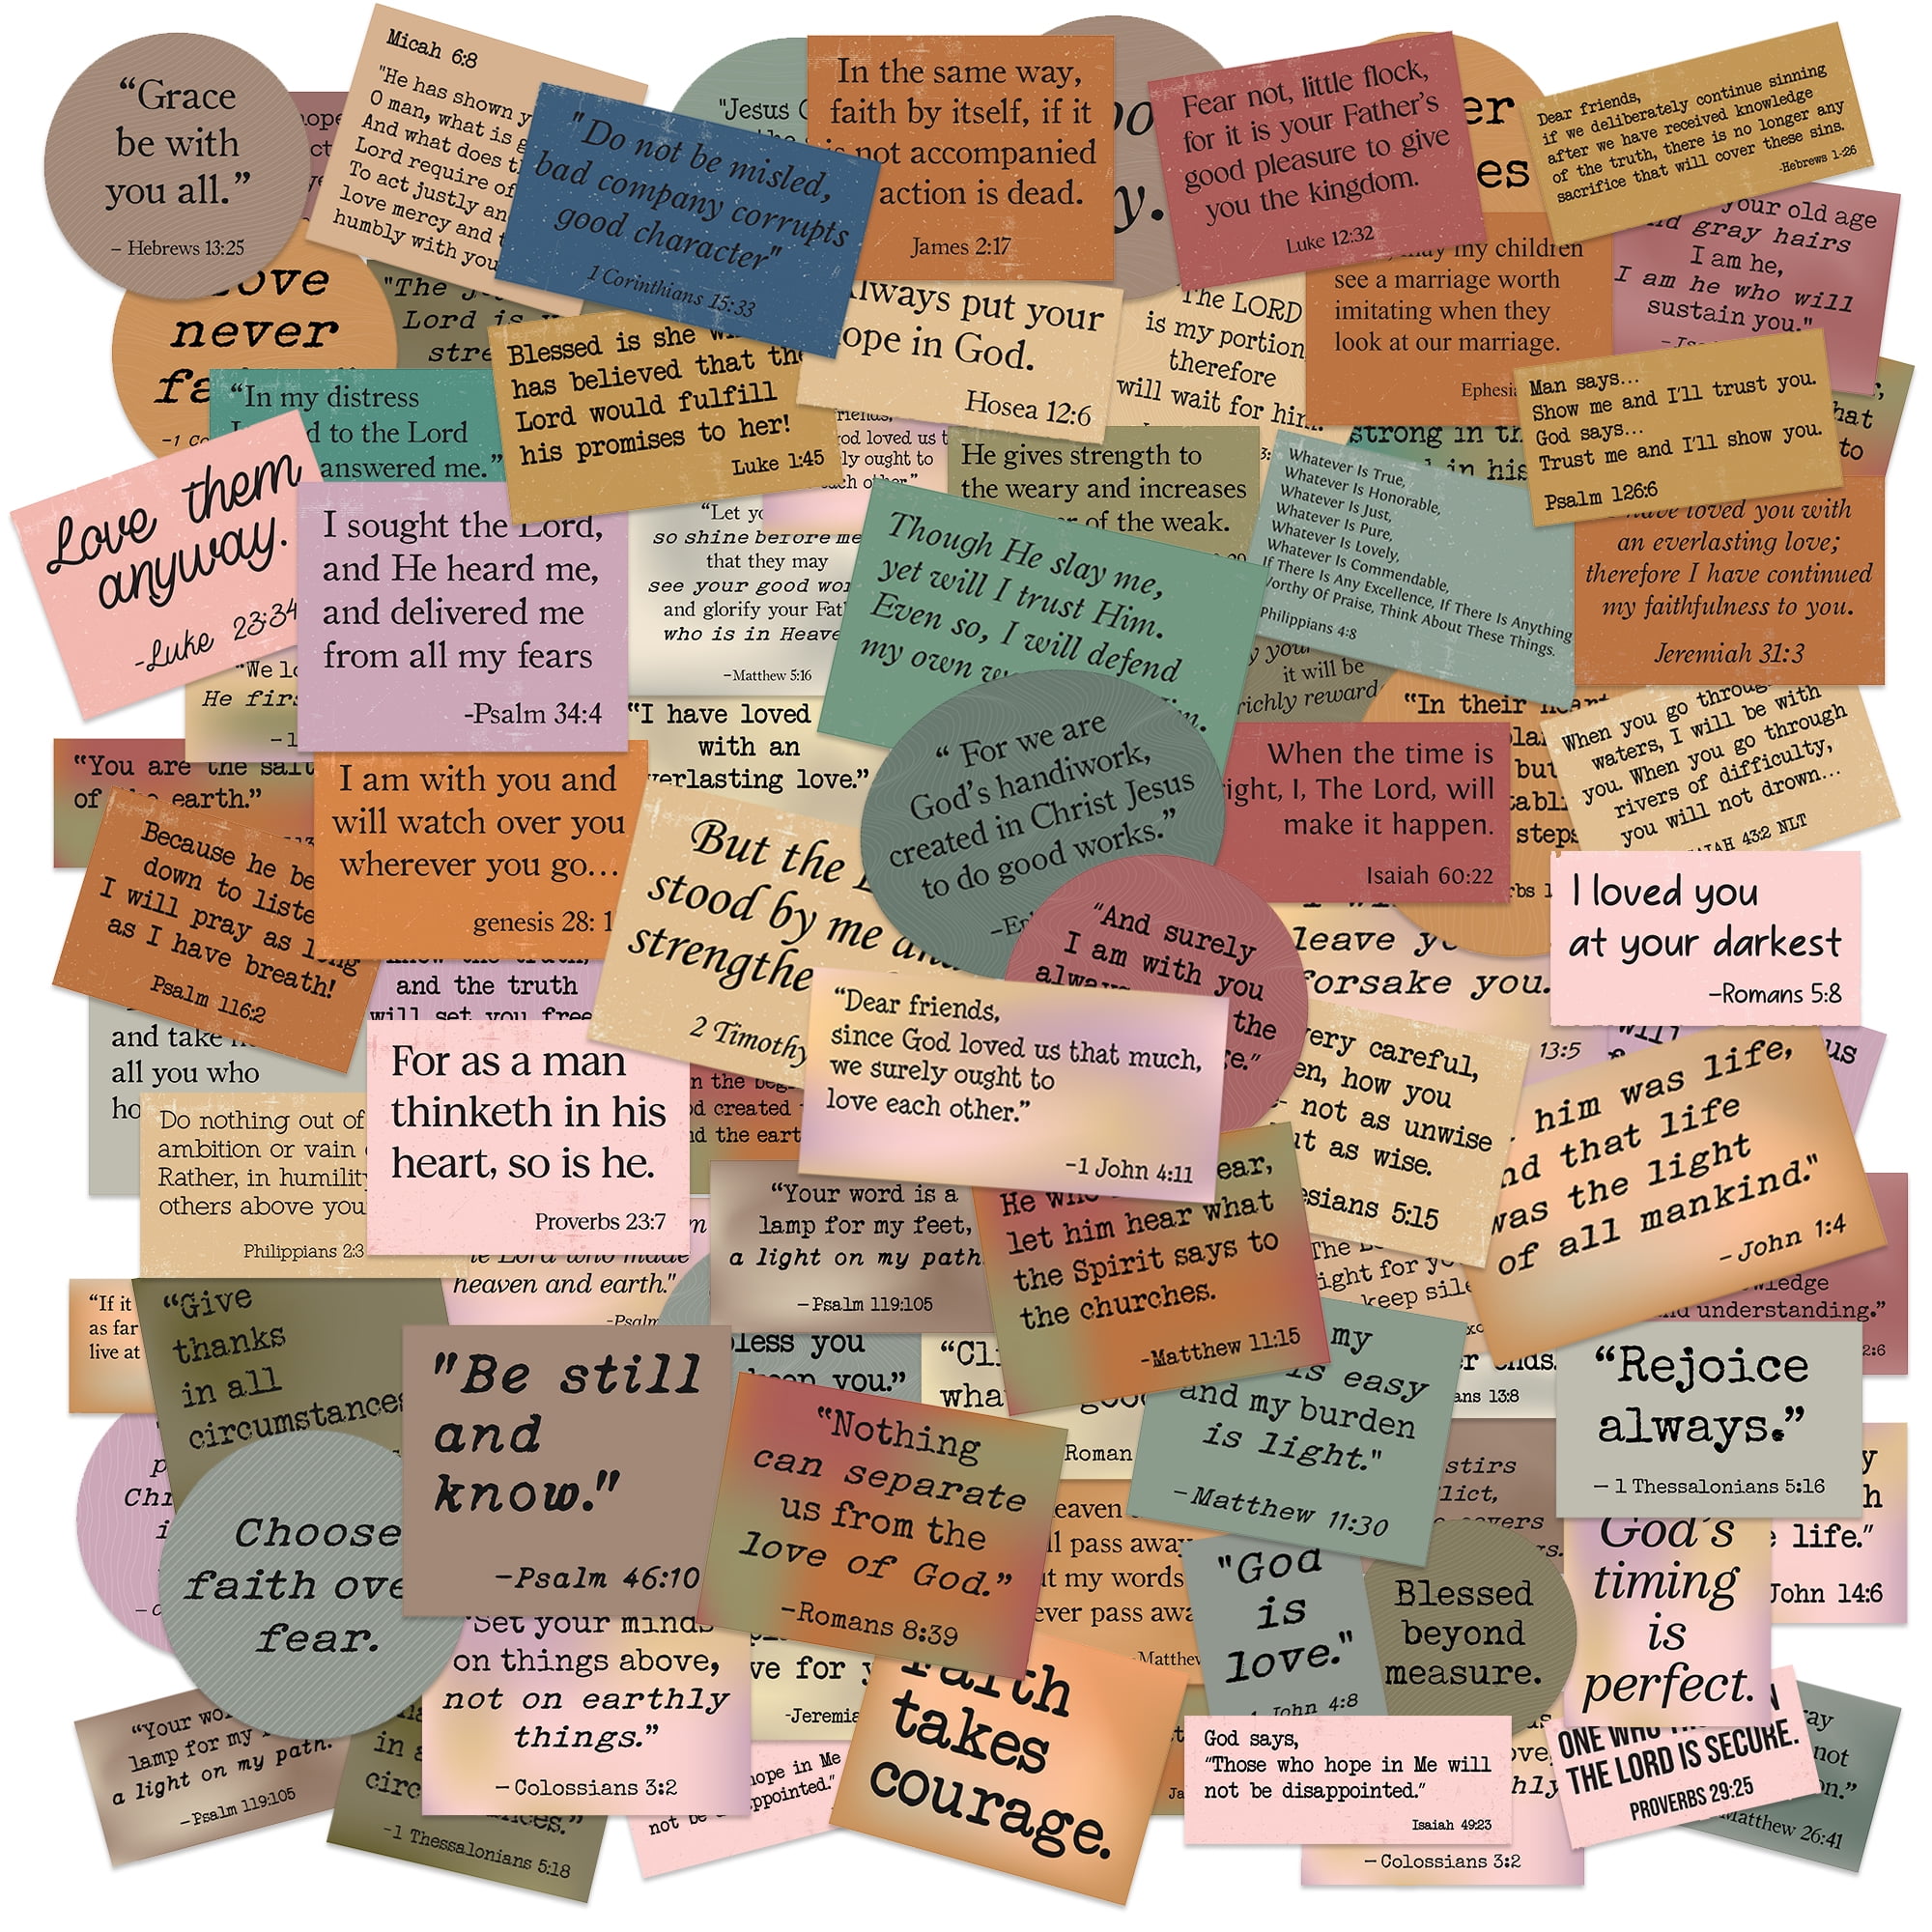 “Grace
be with
you all.”
– Hebrews 13:25
Micah 6:8
"He has shown
O man, what is
And what does
Lord require of
To act justly
love mercy and
humbly with you
"Do not be misled,
bad company corrupts
good character"
1 Corinthians 15:33
"Jesus
In the same way,
faith by itself, if it
is not accompanied
action is dead.
James 2:17
Fear not, little flock,
for it is your Father's
good pleasure to give
you the kingdom.
Luke 12:32
Dear friends,
if we deliberately continue sinning
after we have received knowledge
of the truth, there is no longer any
sacrifice that will cover these sins.
-Hebrews 1-26
your old age
gray hairs
I am he,
I am he who will
sustain you."
my children
see a marriage worth
imitating when they
look at our marriage.
never
"The
Lord is
Blessed is she
has believed that the
Lord would fulfill
his promises to her!
Luke 1:45
always put your
hope in God.
Hosea 12:6
The LORD
is my portion,
therefore
will wait for him.
Man says...
Show me and I'll trust you.
God says...
Trust me and I'll show you.
Psalm 126:6
“In my distress
to the Lord
answered me.”
Love them
anyway.
-Luke 23:34
I sought the Lord,
and He heard me,
and delivered me
from all my fears
-Psalm 34:4
loved us
ought to
each other.”
“Let
so shine before me
that they may
see your good
and glorify your
who is in
–Matthew 5:16
He gives strength to
the weary and increases
of the weak.
Though He slay me,
yet will I trust Him.
Even so, I will defend
my own
strong in
in his
Whatever Is True,
Whatever Is Honorable,
Whatever Is Just,
Whatever Is Pure,
Whatever Is Lovely,
Whatever Is Commendable,
If There Is Any Excellence, If There Is Anything
Worthy Of Praise, Think About These Things.
Philippians 4:8
have loved you with
an everlasting love;
therefore I have continued
my faithfulness to you.
Jeremiah 31:3
“We
He
it will be
richly
“I have loved
with an
everlasting love.”
“You are the salt
of the earth.”
I am with you and
will watch over you
wherever you go...
genesis 28: 1
“ For we are
God's handiwork,
created in Christ Jesus
to do good works.”
When the time is
right, I, The Lord, will
make it happen.
Isaiah 60:22
“In their
but
steps
When you go through
waters, I will be with
you. When you go through
rivers of difficulty,
you will not drown...
43:2 NLT
Because he
down to
I will pray as long
as I have breath!
Psalm 116:2
But the
stood by me and
2 Timothy
“And surely
I am with you
the
leave
forsake you.
I loved you
at your darkest
–Romans 5:8
and the truth
will set you free
and take
all you who
For as a man
thinketh in his
heart, so is he.
Proverbs 23:7
“Dear friends,
since God loved us that much,
we surely ought to
love each other.”
–1 John 4:11
careful,
how you
not as unwise
as wise.
5:15
13:5
him was life,
and that life
was the light
of all mankind."
– John 1:4
Do nothing out of
ambition or vain
Rather, in humility
others above you
Philippians 2:3
the
created
the
“Your word is a
lamp for my feet,
a light on my path.
– Psalm 119:105
He who
let him hear what
the Spirit says to
the churches.
-Matthew 11:15
Lord who made
heaven and earth."
-Psalm
The
for
keep
understanding.”
2:6
“If it
as far
live at
“Give
thanks
in all
circumstances
"Be still
and
know."
–Psalm 46:10
bless you
keep you.”
what
my
is easy
and my burden
is light."
–Matthew 11:30
ends.
13:8
“Rejoice
always.”
– 1 Thessalonians 5:16
“Nothing
can separate
us from the
love of God.”
–Romans 8:39
stirs
covers
life.”
John 14:6
Choose
faith over
fear.
pass away
my words
pass
"God
is
love."
John 4:8
Blessed
beyond
measure.
God's
timing
is
perfect.
Set your minds
on things above,
not on earthly
things.”
– Colossians 3:2
for
-Jeremia
Faith
takes
courage.
“Your
lamp for my
a light on my path.
–Psalm 119:105
in
–1 Thessalonians 5:18
hope in Me
not be disappointed.”
God says,
“Those who hope in Me will
not be disappointed.”
Isaiah 49:23
– Colossians 3:2
ONE WHO
THE LORD IS SECURE.
PROVERBS 29:25
not
Matthew 26:41